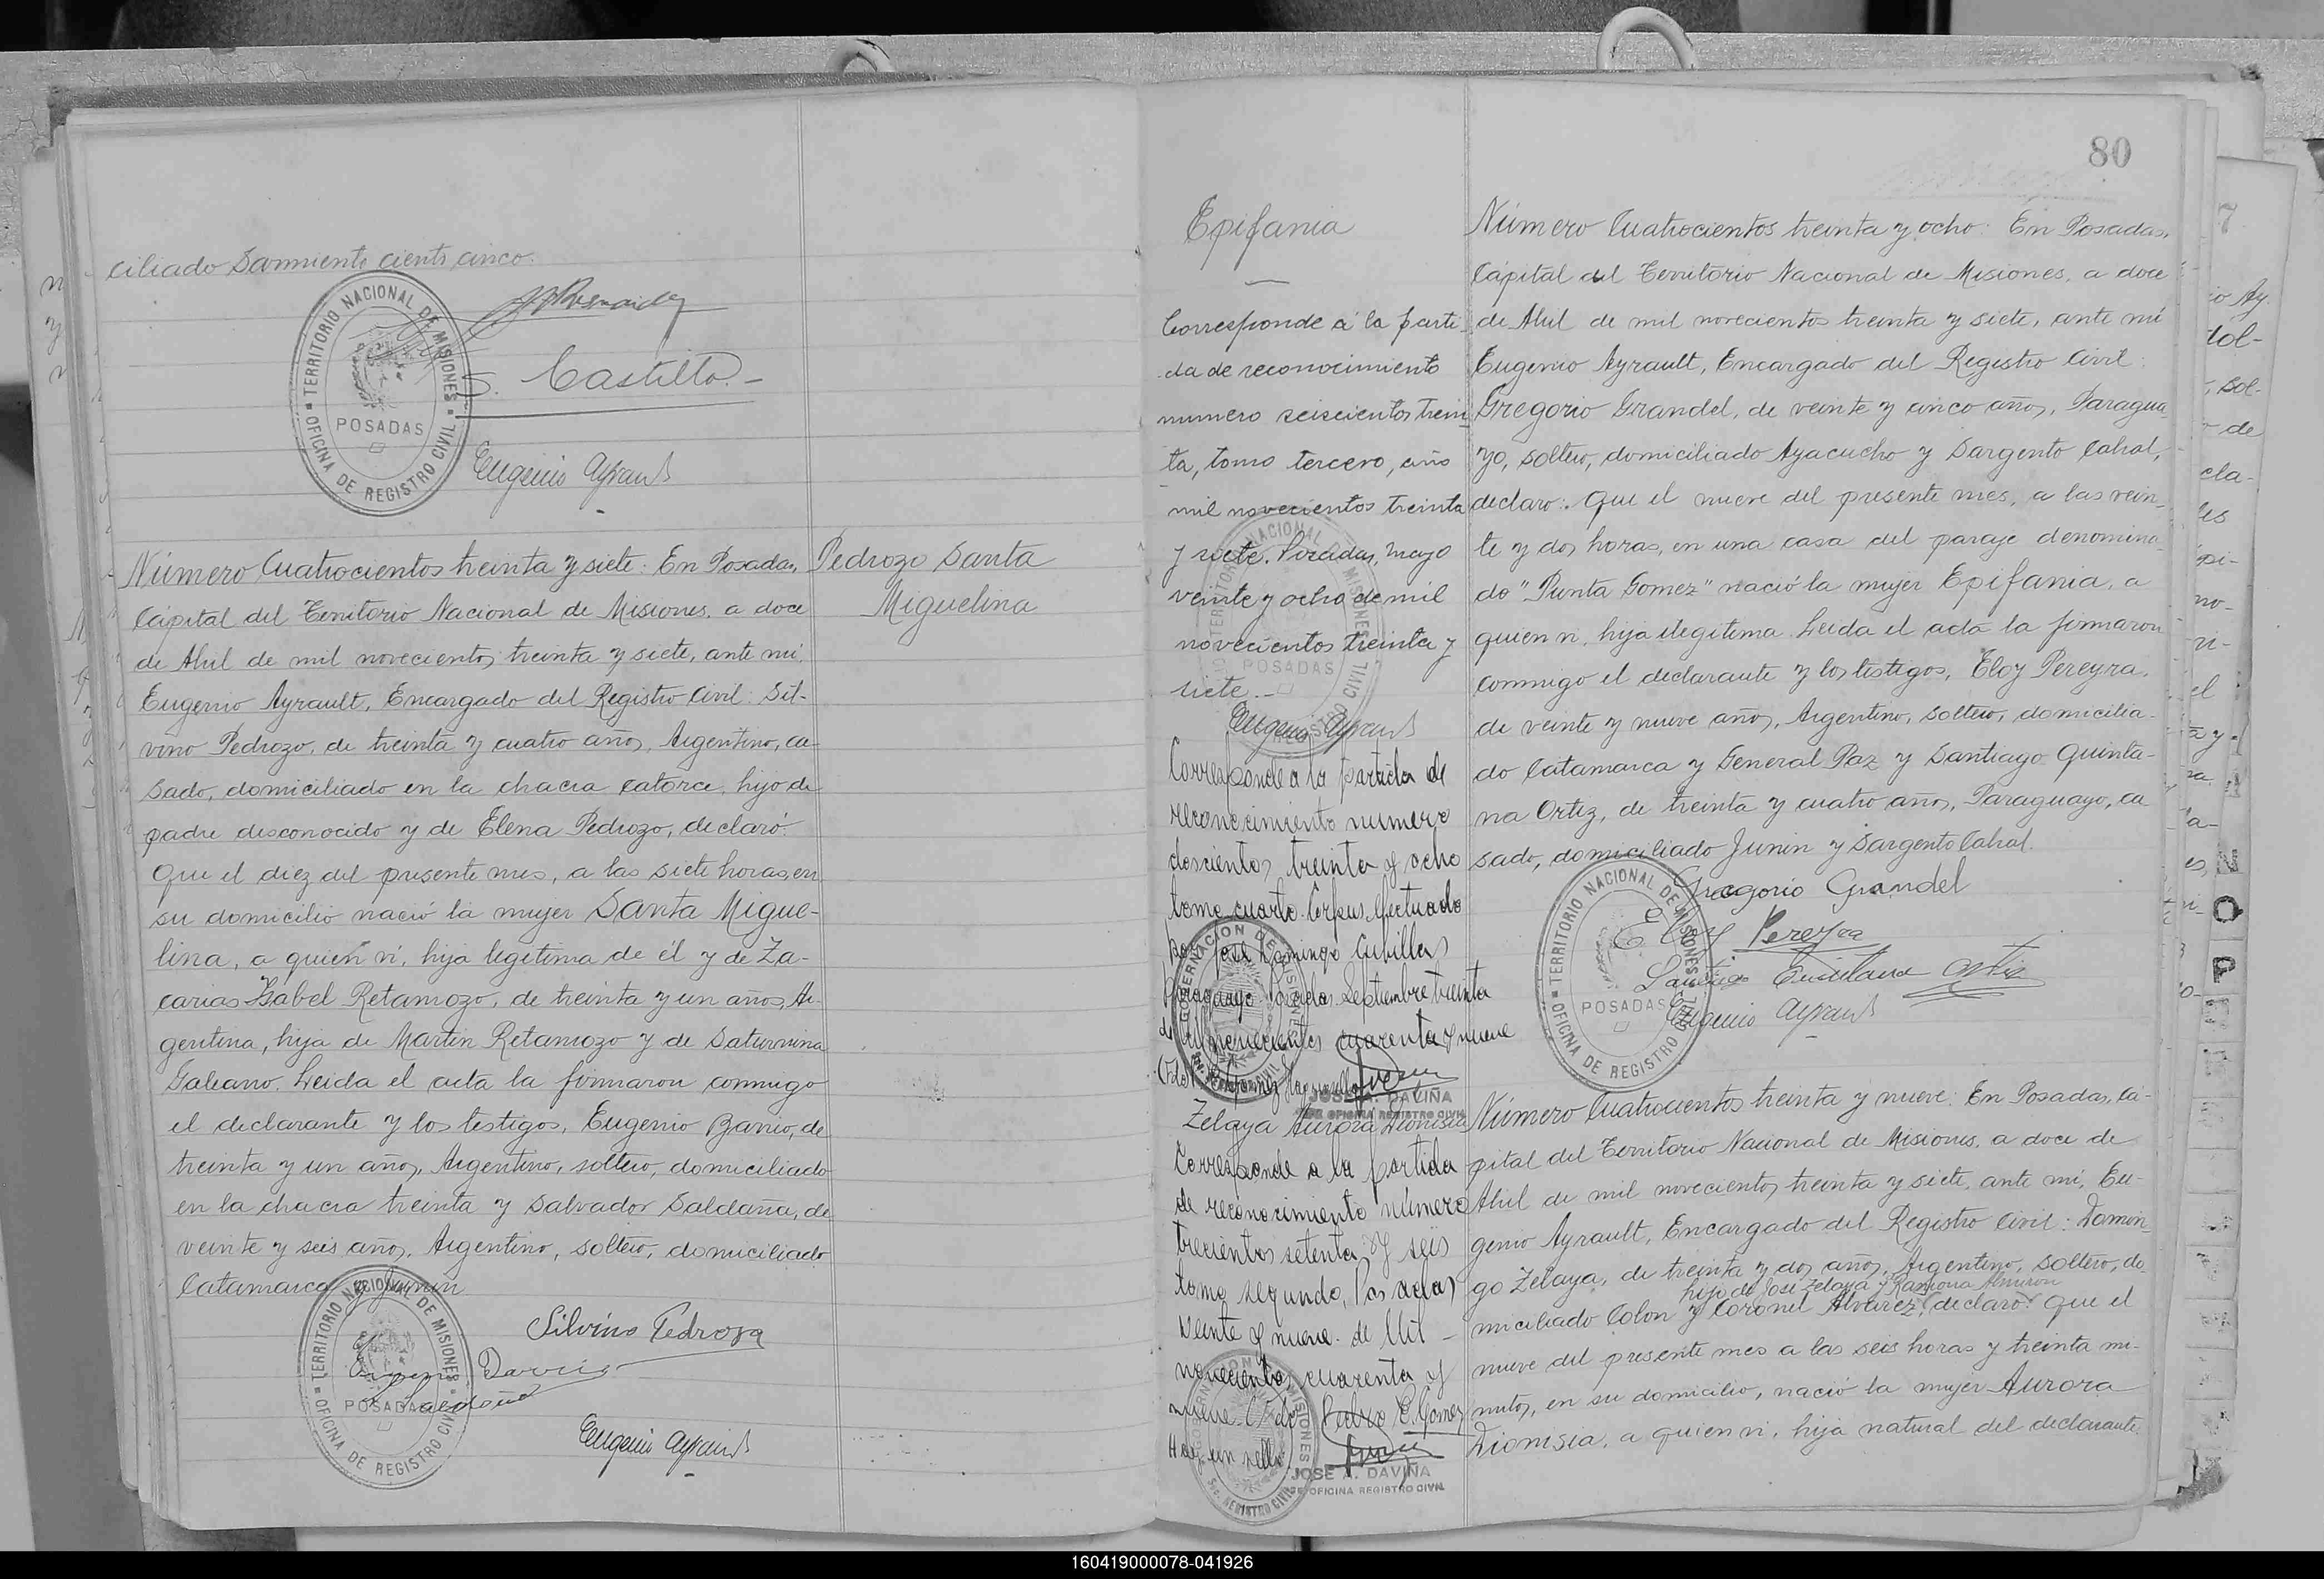 ciliado Sarmiento ciento cinco.
TERRITORIO NACIONAL DE MISIONES
POSADAS
OFICINA DE REGISTRO CIVIL
S. Castillo
Eugenio Ayrault
Número Cuatrocientos treinta y siete: En Posadas,
Capital del Territorio Nacional de Misiones, a doce
de Abril de mil novecientos treinta y siete, ante mi
Eugenio Ayrault, Encargado del Registro Civil: Sil-
vino Pedrozo, de treinta y cuatro años, Argentino, ca-
sado, domiciliado en la chacra catorce, hijo de
padre desconocido y de Elena Pedrozo, declaró:
Que el diez del presente mes, a las siete horas, en
su domicilio nació la mujer Santa Migue-
lina, a quien vi, hija legitima de él y de Za-
carias Isabel Retamozo, de treinta y un años, Ar-
gentina, hija de Martin Retamozo y de Saturnina
Galeano. Leida el acta la firmaron conmigo
el declarante y los testigos, Eugenio Barrio, de
treinta y un años, Argentino, soltero, domiciliado
en la chacra treinta y Salvador Saldaña, de
veinte y seis años, Argentino, soltero, domiciliado
Catamarca y Junin
Silvino Pedroza
TERRITORIO NACIONAL DE MISIONES
POSADAS
OFICINA DE REGISTRO CIVIL
Eugenio Ayrault
Pedrozo Santa
Miguelina
80
Epifania
Corresponde á la parti-
da de reconocimiento
numero seiscientos trein
ta, tomo tercero, año
mil novecientos treinta
y siete. Posadas, mayo
veinte y ocho de mil
novecientos treinta y
siete.-
Eugenio Ayrault
Corresponde a la partida de
reconocimiento numero
doscientos treinta y ocho
tomo cuarto. Corpus, efectuado
por José Domingo Cubillas
Paraguayo. Posadas. Septiembre treinta
de mil novecientos cuarenta y nueve
JOSE A. DAVIÑA
JEFE OFICINA REGISTRO CIVIL
Número Cuatrocientos treinta y ocho: En Posadas,
Capital del Territorio Nacional de Misiones, a doce
de Abril de mil novecientos treinta y siete, ante mi
Eugenio Ayrault, Encargado del Registro Civil:
Gregorio Grandel, de veinte y cinco años, Paragua-
yo, soltero, domiciliado Ayacucho y Sargento Cabral,
declaro: Que el nueve del presente mes, a las vein-
te y dos horas, en una casa del paraje denomina-
do "Punta Gomez" nació la mujer Epifania, a
quien vi, hija ilegitima. Leida el acta la firmaron
conmigo el declarante y los testigos, Eloy Pereyra,
de veinte y nueve años, Argentino, soltero, domicilia-
do Catamarca y General Paz y Santiago Quinta-
na Ortiz, de treinta y cuatro años, Paraguayo, ca
sado, domiciliado Junin y Sargento Cabral.
Gregorio Grandel
Eloy Pereyra
Santiago Quintana Ortiz
Eugenio Ayrault
TERRITORIO NACIONAL DE MISIONES
POSADAS
OFICINA DE REGISTRO CIVIL
Zelaya Aurora Dionisia
Corresponde a la partida
de reconocimiento número
trescientos setenta y seis
tomo segundo, Posadas
veinte y nueve de
novecientos cuarenta y
nueve. Pedro E. Gomez
Hay un sello.
JOSE A. DAVIÑA
JEFE OFICINA REGISTRO CIVIL
Número Cuatrocientos treinta y nueve: En Posadas, Ca-
pital del Territorio Nacional de Misiones, a doce de
Abril de mil novecientos treinta y siete, ante mi, Eu-
genio Ayrault, Encargado del Registro Civil: Domin-
go Zelaya, de treinta y dos años, Argentino, soltero, do
hijo de José Zelaya y Ramona Almiron
miciliado Colon y Coronel Alvarez, declaro: Que el
nueve del presente mes a las seis horas y treinta mi-
nutos, en su domicilio, nació la mujer Aurora
Dionisia, a quien vi, hija natural del declarante
160419000078-041926